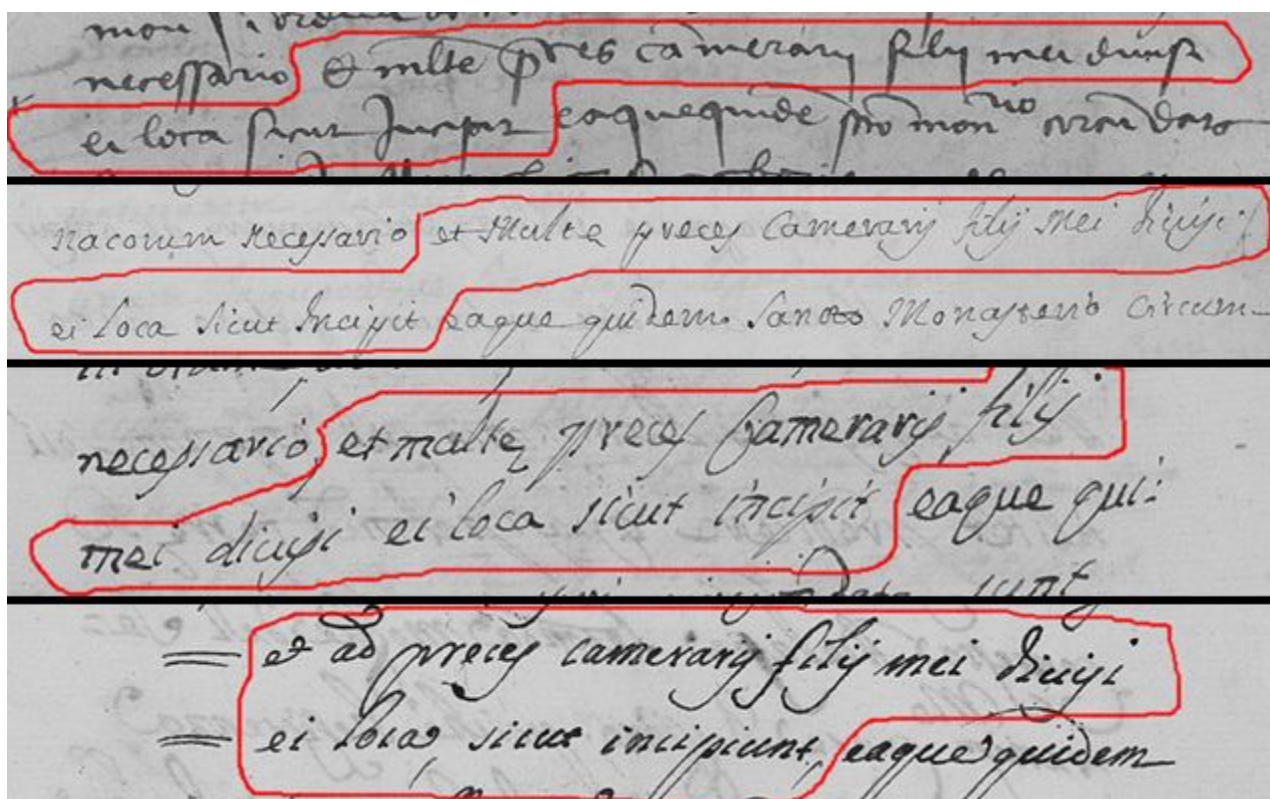 necessario & mlte pres camerarij filij mei diuisi
ei loca sicut Incipit eaquequide sto monrio circudata
nacorum necessario et Multe preces Camerarij filij mei diuisi
ei loca sicut Incipit eaque quidem Sancto Monasterio Circum-
necessario et multe preces Camerarij filij
mei diuisi ei loca sicut incipit eaque qui:
sunt
et ad preces camerarij filij mei diuisi
ei loca sicut incipiunt, eaque quidem